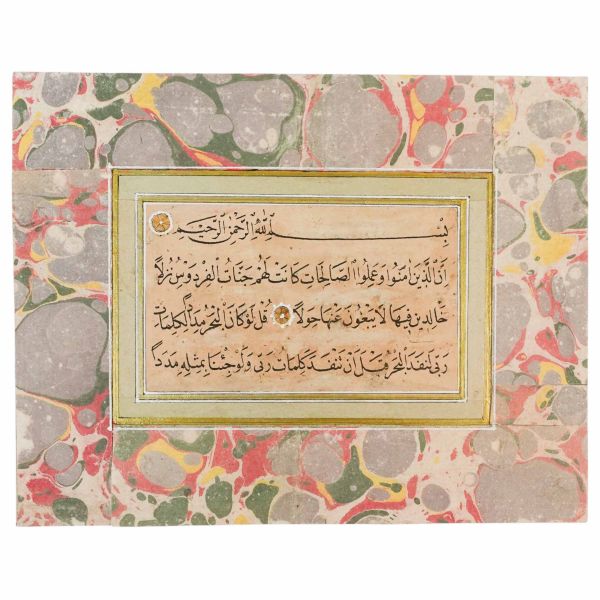 بِسْمِ ٱللَّهِ ٱلرَّحْمَنِ ٱلرَّحِيمِ
اِنَّ الَّذِينَ اٰمَنُوا وَعَمِلُوا الصَّالِحَاتِ كَانَتْ لَهُمْ جَنَّاتُ الْفِرْدَوْسِ نُزُلًا
خَالِدِينَ فِيهَا لَا يَبْغُونَ عَنْهَا حِوَلًا قُلْ لَوْ كَانَ الْبَحْرُ مِدَادًا لِكَلِمَاتِ
رَبِّى لَنَفِدَ الْبَحْرُ قَبْلَ اَنْ تَنْفَدَ كَلِمَاتُ رَبِّى وَلَوْ جِئْنَا بِمِثْلِهِ مَدَدًا